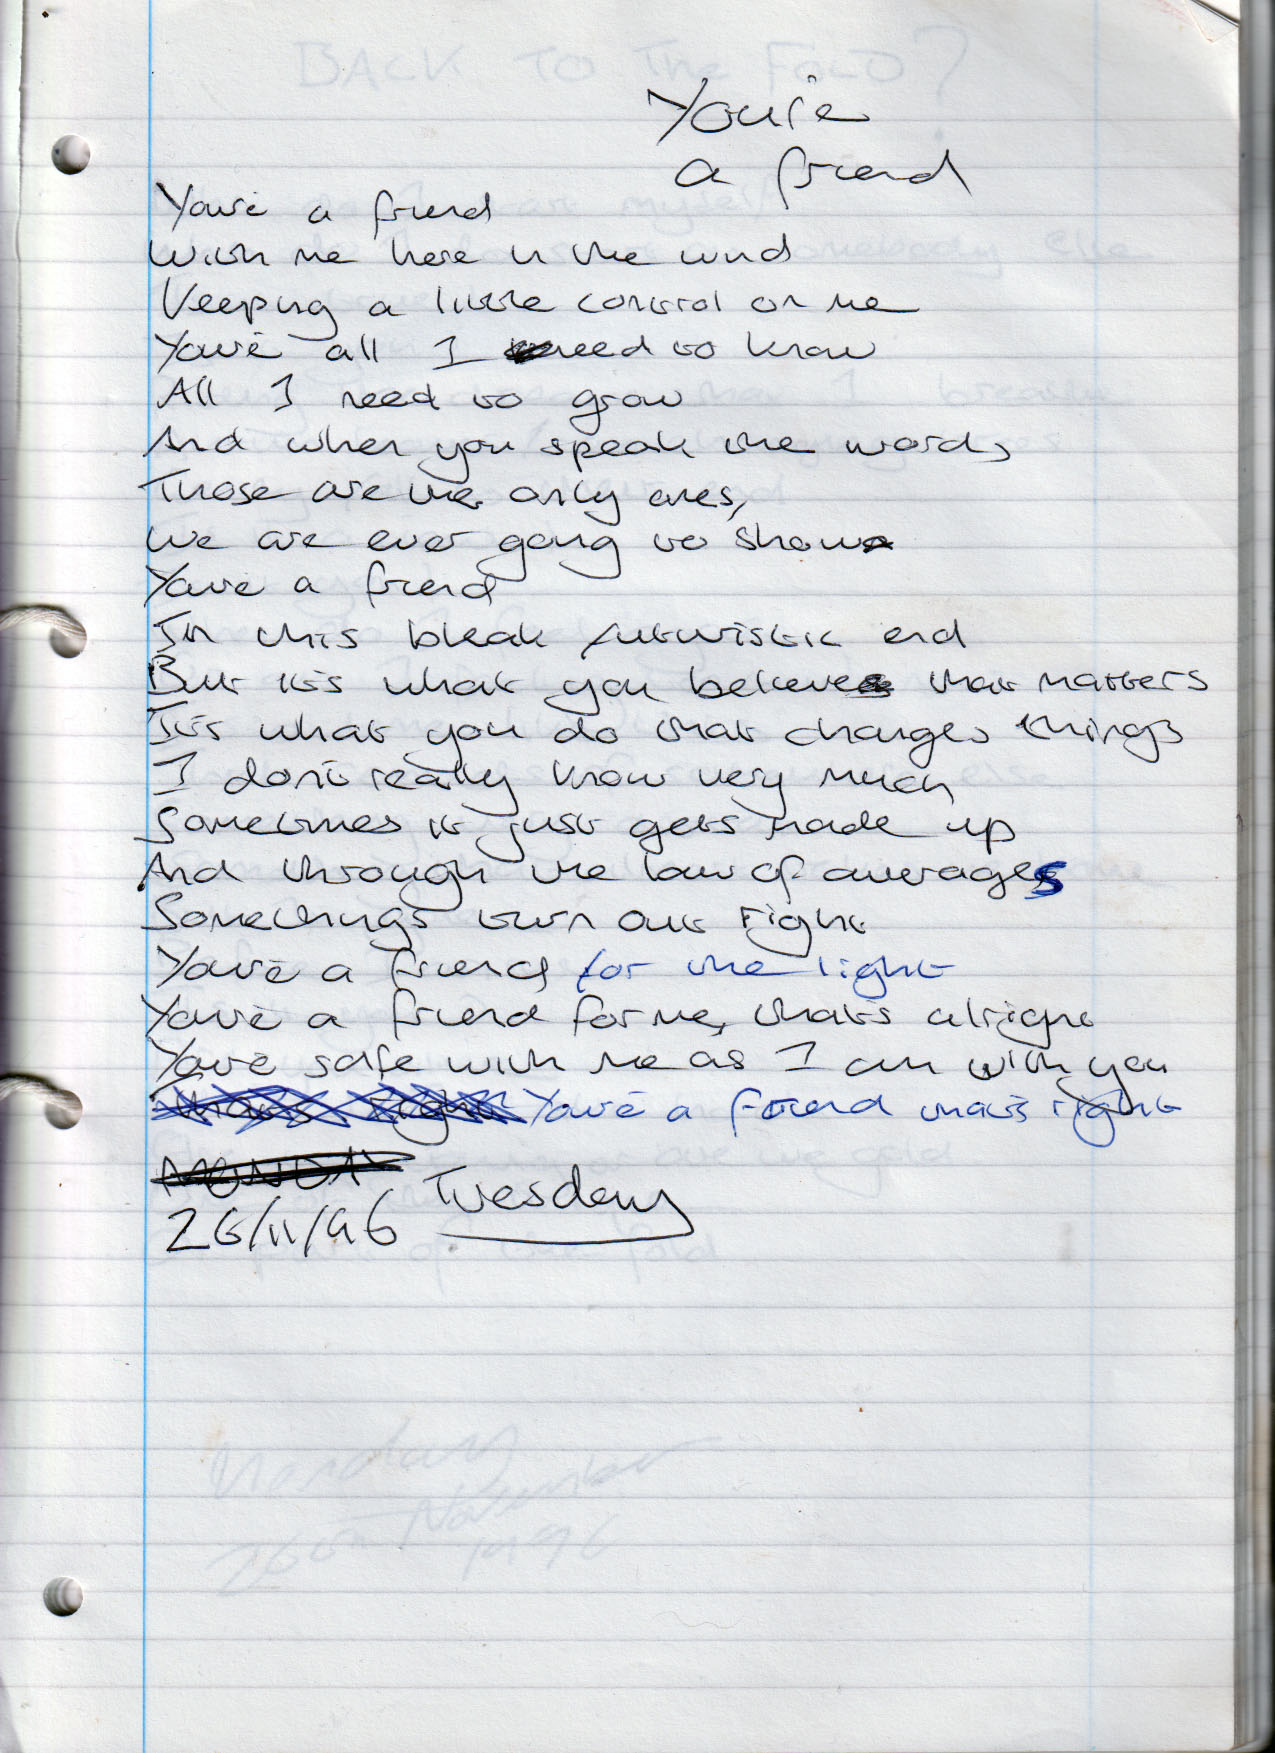 You're
a friend
You're a friend
With me here in the wind
Keeping a little control on me
You're all I need to know
All I need to grow
And when you speak the words
Those are the only ones,
We are ever going to show
You're a friend
In this bleak futuristic end
But it's what you believe that matters
It's what you do that changes things
I don't really know very much
Sometimes it just gets made up
And through the law of averages
Somethings turn out right
You're a friend for the light
You're a friend for me, that's alright
You're safe with me as I am with you
That's right You're a friend that's right
MONDAY Tuesday
26/11/96
BACK TO THE FOLD?